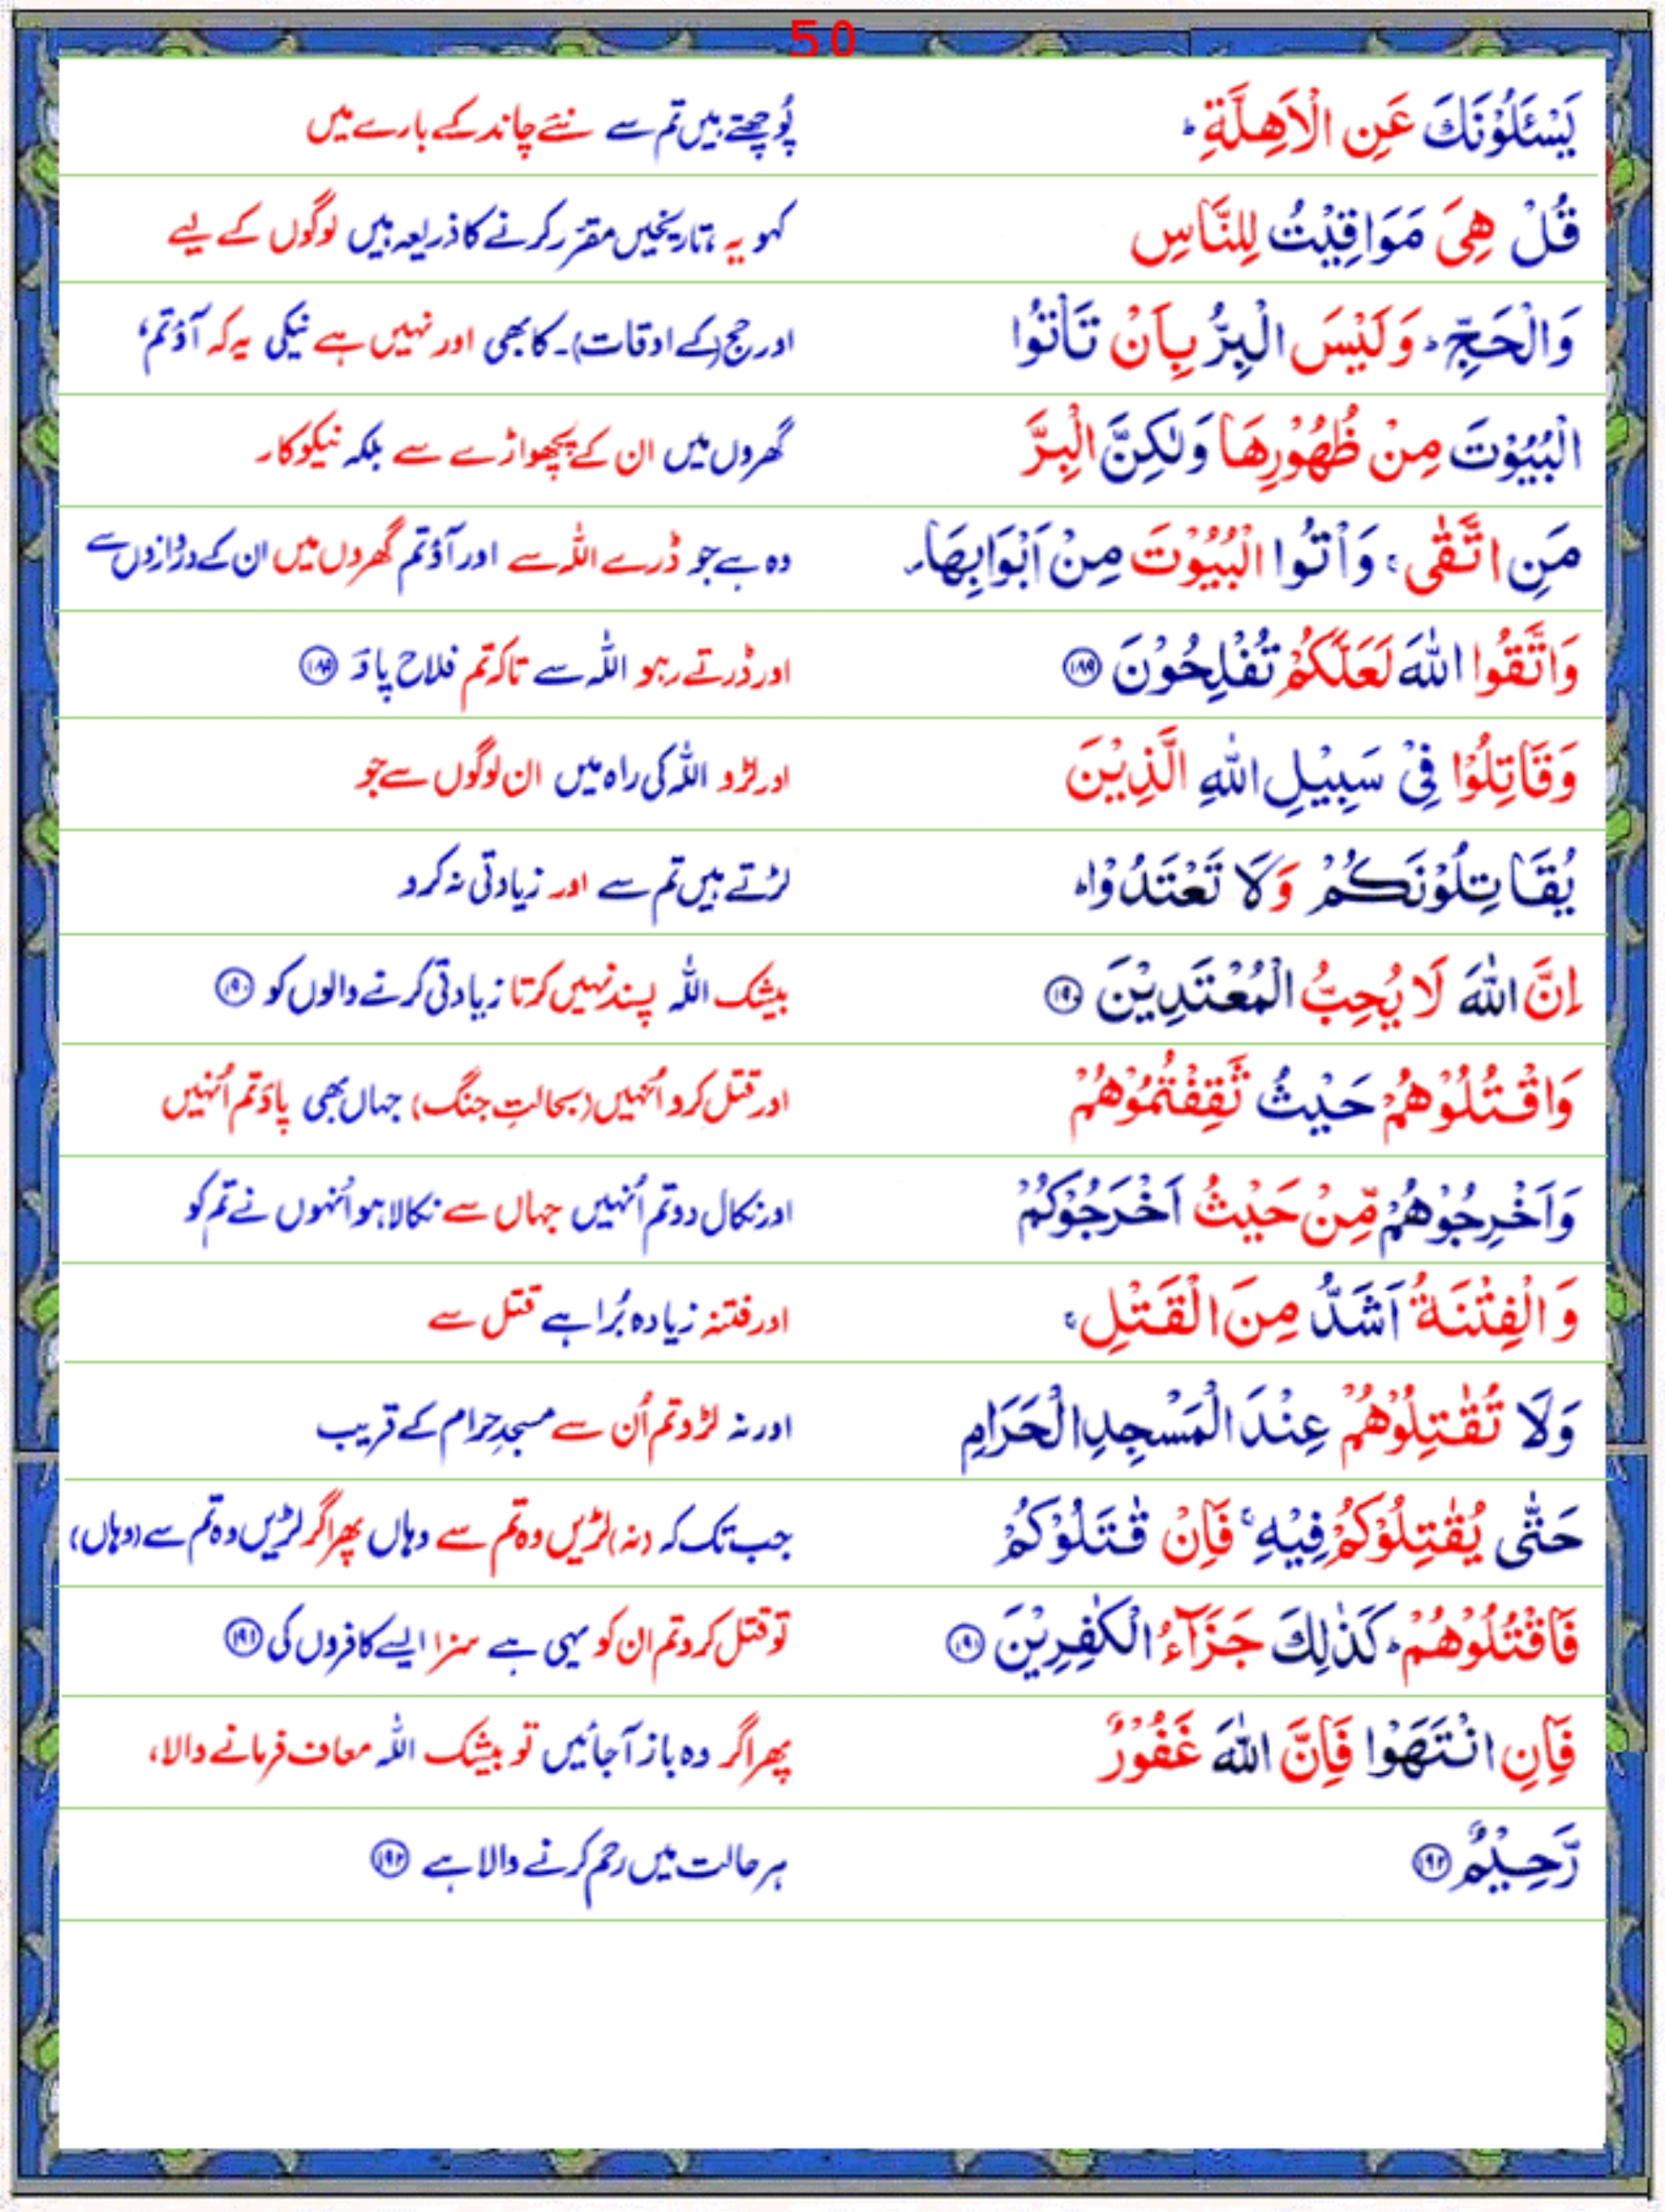 50
يَسْـَٔلُوْنَكَ عَنِ الْاَهِلَّةِ ؕ پُوچھتے ہیں تم سے نئے چاند کے بارے میں
قُلْ هِيَ مَوَاقِيْتُ لِلنَّاسِ کہو یہ تاریخیں مقرر کرنے کا ذریعہ ہیں لوگوں کے لیے
وَالْحَجِّ ؕ وَلَيْسَ الْبِرُّ بِاَنْ تَاْتُوا اور حج (کے اوقات)۔ کا بھی اور نہیں ہے نیکی یہ کہ آؤ تم،
الْبُيُوْتَ مِنْ ظُهُوْرِهَا وَلٰكِنَّ الْبِرَّ گھروں میں ان کے پچھواڑے سے بلکہ نیکوکار
مَنِ اتَّقٰى ۚ وَاْتُوا الْبُيُوْتَ مِنْ اَبْوَابِهَا ۪ وہ ہے جو ڈرے اللہ سے اور آؤ تم گھروں میں ان کے دروازوں سے
وَاتَّقُوا اللّٰهَ لَعَلَّكُمْ تُفْلِحُوْنَ ۱۸۹ اور ڈرتے رہو اللہ سے تاکہ تم فلاح پاؤ ۱۸۹
وَقَاتِلُوْا فِيْ سَبِيْلِ اللّٰهِ الَّذِيْنَ اور لڑو اللہ کی راہ میں ان لوگوں سے جو
يُقَاتِلُوْنَكُمْ وَلَا تَعْتَدُوْا ؕ لڑتے ہیں تم سے اور زیادتی نہ کرو
اِنَّ اللّٰهَ لَا يُحِبُّ الْمُعْتَدِيْنَ ۱۹۰ بیشک اللہ پسند نہیں کرتا زیادتی کرنے والوں کو ۱۹۰
وَاقْتُلُوْهُمْ حَيْثُ ثَقِفْتُمُوْهُمْ اور قتل کرو اُنہیں (بحالتِ جنگ) جہاں بھی پاؤ تم اُنہیں
وَاَخْرِجُوْهُمْ مِّنْ حَيْثُ اَخْرَجُوْكُمْ اور نکال دو تم اُنہیں جہاں سے نکالا ہو اُنہوں نے تم کو
وَالْفِتْنَةُ اَشَدُّ مِنَ الْقَتْلِ ۚ اور فتنہ زیادہ بُرا ہے قتل سے
وَلَا تُقٰتِلُوْهُمْ عِنْدَ الْمَسْجِدِ الْحَرَامِ اور نہ لڑو تم اُن سے مسجدِ حرام کے قریب
حَتّٰى يُقٰتِلُوْكُمْ فِيْهِ ۚ فَاِنْ قٰتَلُوْكُمْ جب تک کہ (نہ) لڑیں وہ تم سے وہاں پھر اگر لڑیں وہ تم سے (وہاں)
فَاقْتُلُوْهُمْ ؕ كَذٰلِكَ جَزَآءُ الْكٰفِرِيْنَ ۱۹۱ تو قتل کرو تم ان کو یہی ہے سزا ایسے کافروں کی ۱۹۱
فَاِنِ انْتَهَوْا فَاِنَّ اللّٰهَ غَفُوْرٌ پھر اگر وہ باز آجائیں تو بیشک اللہ معاف فرمانے والا،
رَّحِيْمٌ ۱۹۲ ہر حالت میں رحم کرنے والا ہے ۱۹۲